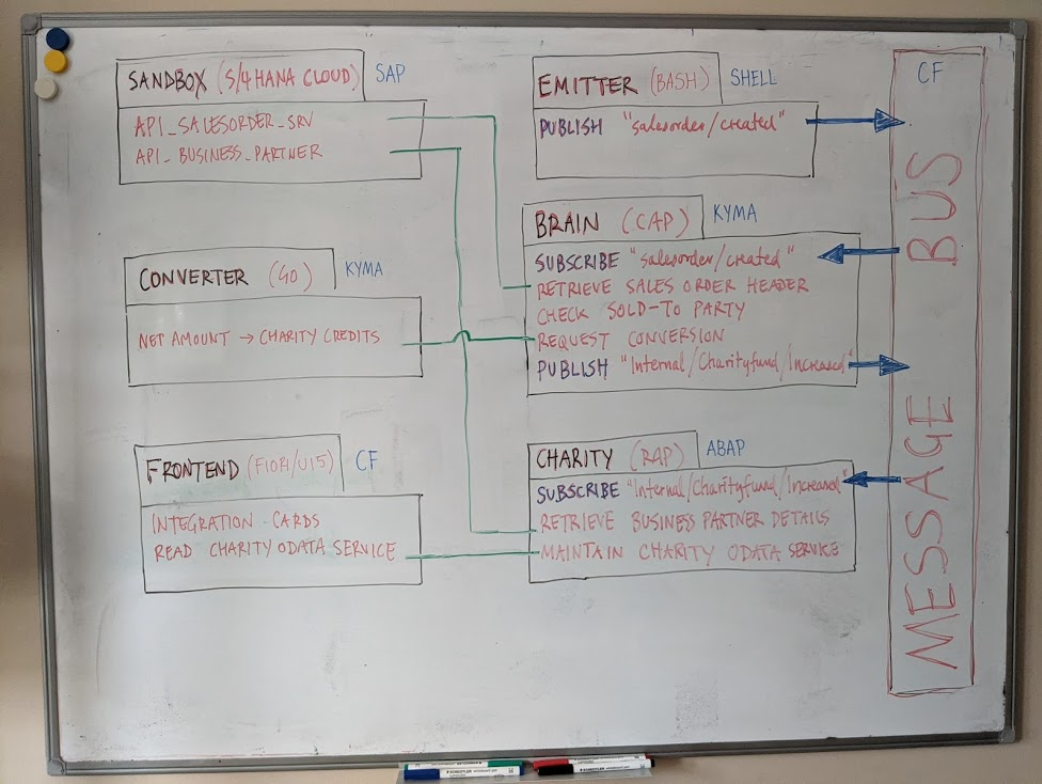 SANDBOX (S/4HANA CLOUD) SAP
API_SALESORDER_SRV
API_BUSINESS_PARTNER
EMITTER (BASH) SHELL
PUBLISH "salesorder/created"
BRAIN (CAP) KYMA
SUBSCRIBE "salesorder/created"
RETRIEVE SALES ORDER HEADER
CHECK SOLD-TO PARTY
REQUEST CONVERSION
PUBLISH "Internal/Charityfund/Increased"
CONVERTER (GO) KYMA
NET AMOUNT → CHARITY CREDITS
FRONTEND (FIORI/UI5) CF
INTEGRATION CARDS
READ CHARITY ODATA SERVICE
CHARITY (RAP) ABAP
SUBSCRIBE "Internal/Charityfund/Increased"
RETRIEVE BUSINESS PARTNER DETAILS
MAINTAIN CHARITY ODATA SERVICE
CF
MESSAGE BUS